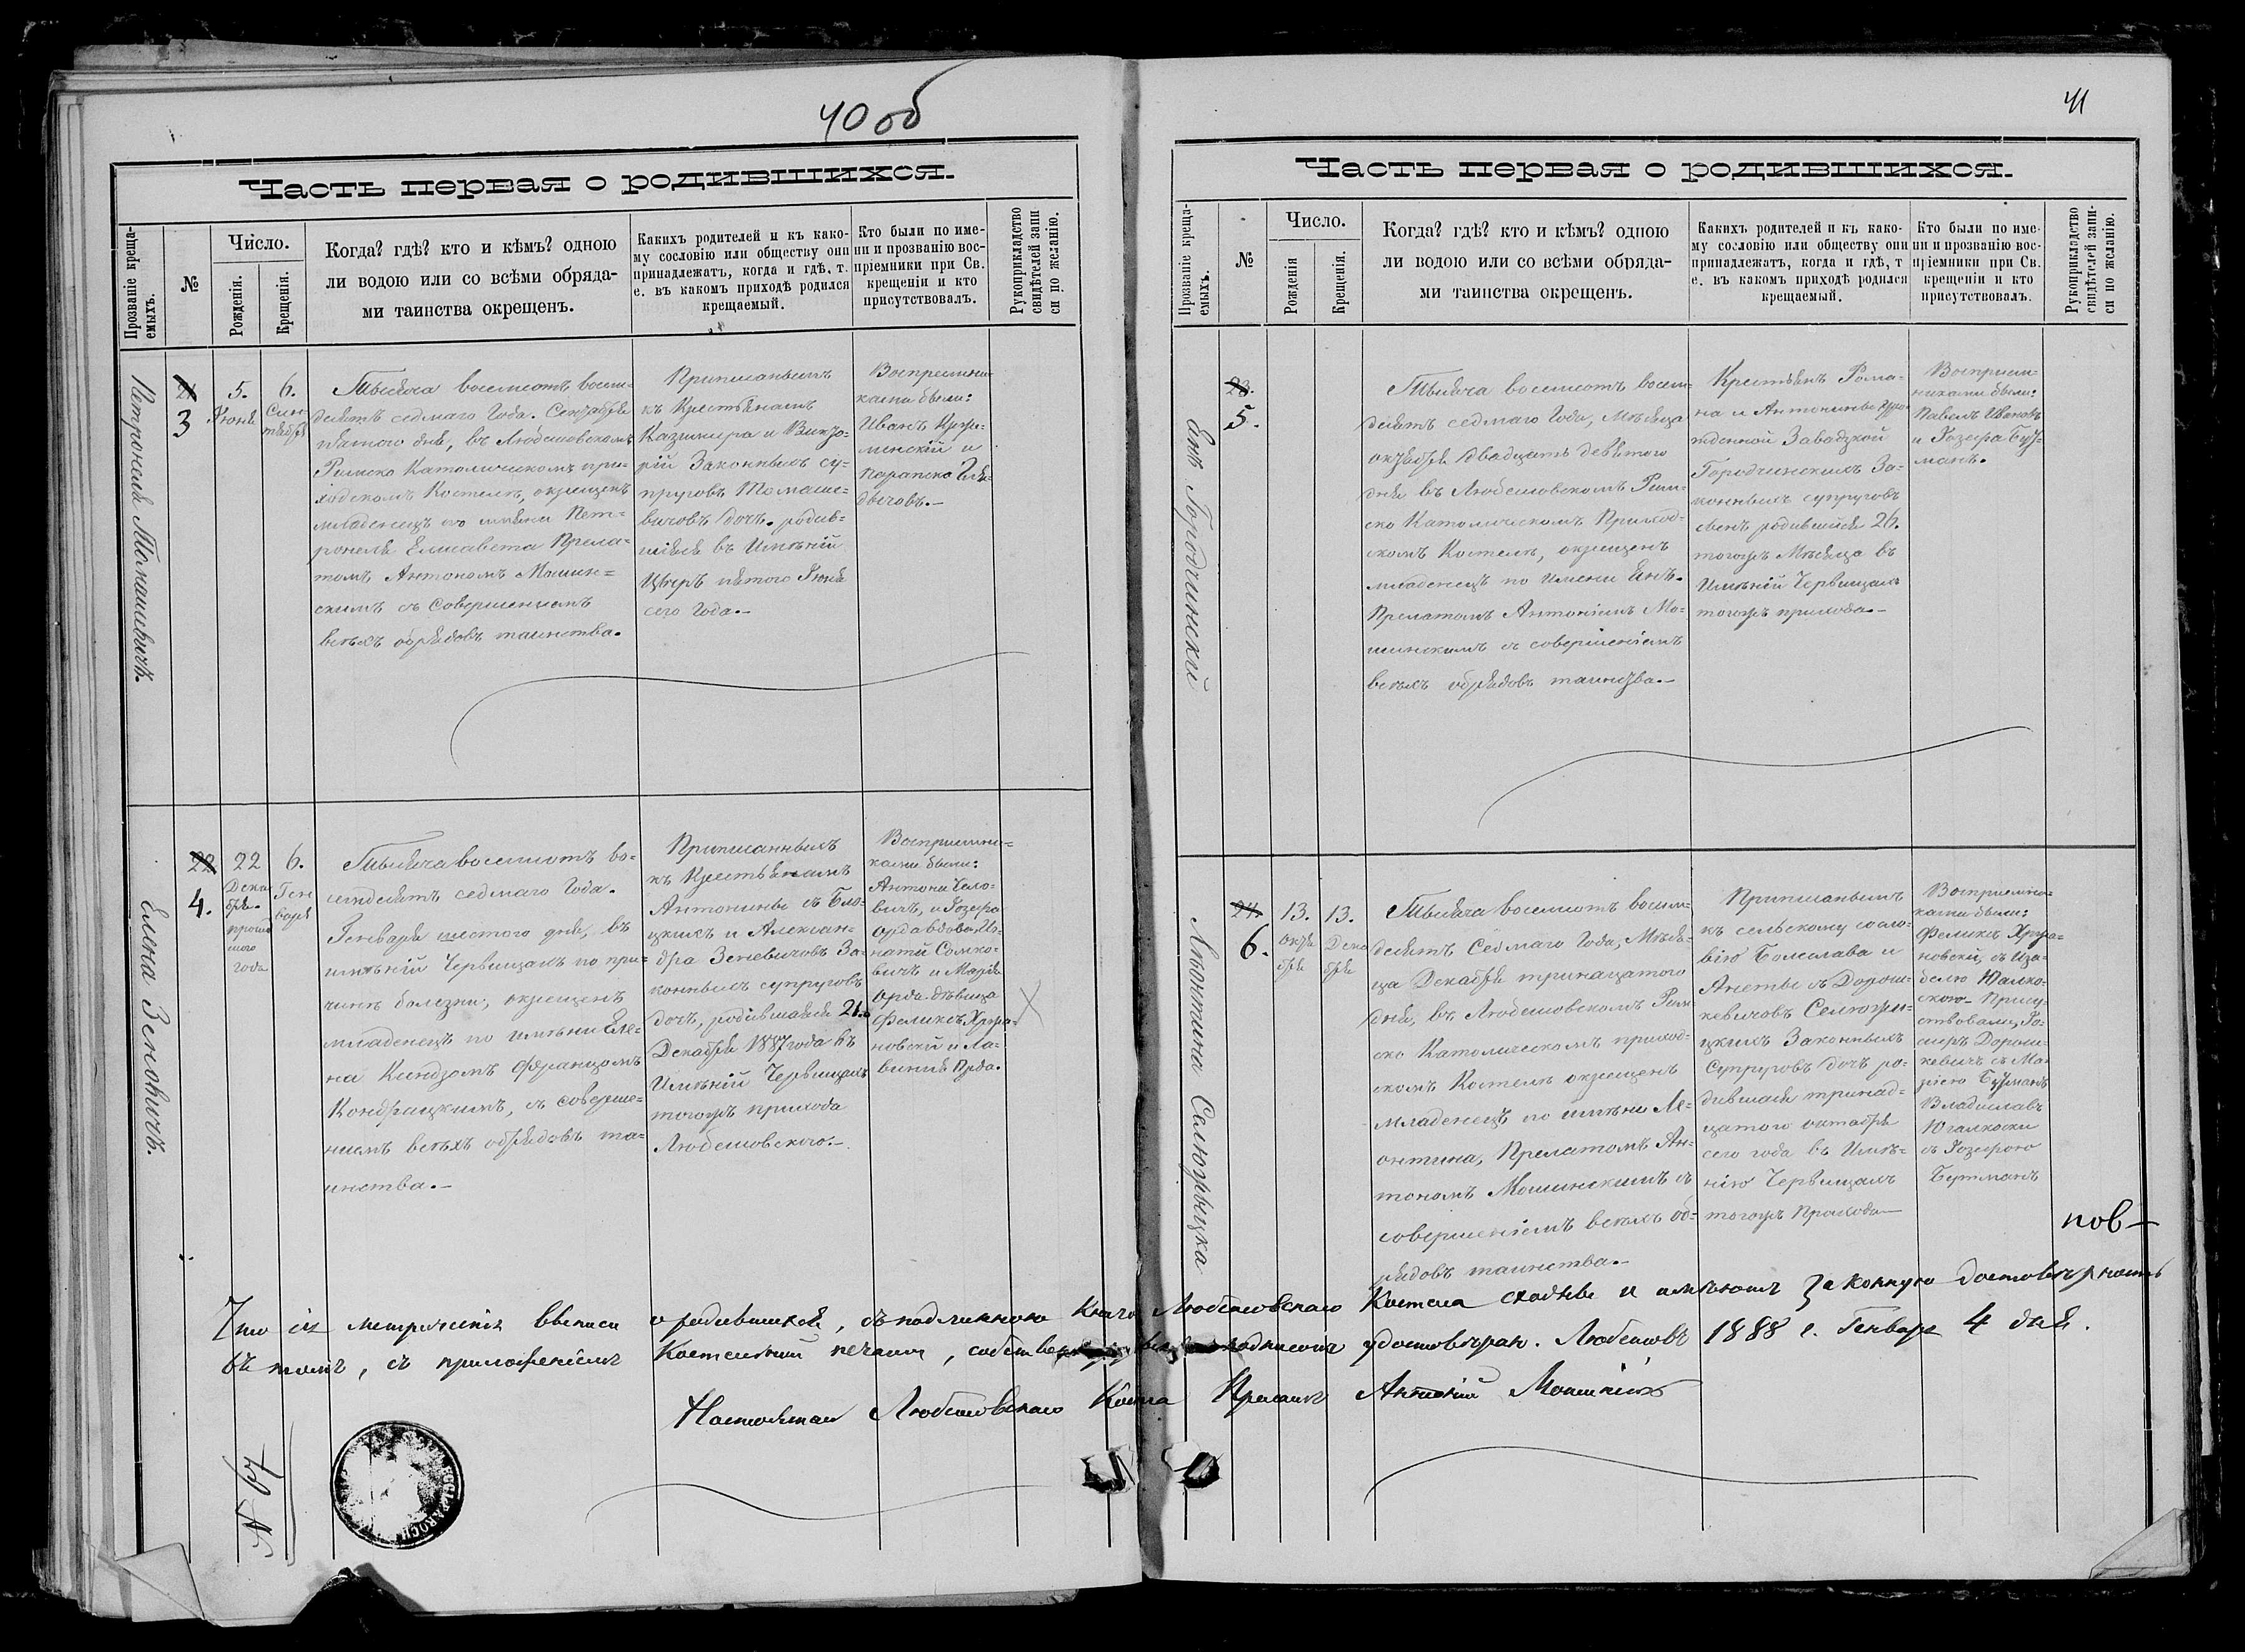 40 об
Часть первая о родившихся.
Прозваніе креща-
емыхъ.
№
Число.
Рожденія.
Крещенія.
Когда? гдѣ? кто и кѣмъ? одною
ли водою или со всѣми обряда-
ми таинства окрещенъ.
Какихъ родителей и къ како-
му сословію или обществу они
принадлежатъ, когда и гдѣ, т.
е. въ какомъ приходѣ родился
крещаемый.
Кто были по име-
ни и прозванію вос-
пріемники при Св.
крещеніи и кто
присутствовалъ.
Рукоприкладство
свидѣтелей запи
си по желанію.
Петронеля Томашевичъ.
21
3
5.
Іюня
6.
Сен-
тября
Тысяча восемсотъ восем-
десятъ седмаго Года. Сентября
шестаго дня, въ Любешовскомъ
Римско Католическомъ при-
ходскомъ Костелѣ, окрещенъ
младенецъ по имени Пет-
ронеля Елисавета Прела-
томъ Антономъ Мошин-
скимъ съ совершеніемъ
всѣхъ обрядовъ таинства.
Приписанныхъ
къ Крестьянамъ
Казимира и Викто-
рій Законныхъ су-
пруговъ Томаше-
вичовъ дочь. родив-
шаяся въ Имѣній
Цыръ пятого Іюня
сего Года.
Воспреемни-
ками были:
Иванъ
и
22
4.
22
Дека
бря.
прош
лого
года
6.
Ген
варя
Елена Зеновичъ.
Тысяча восемсотъ во-
семдесятъ седмаго Года.
Генваря шестого дня, въ
имѣній Червищахъ по при-
чинѣ болезни, окрещенъ
младенецъ по имѣни Еле-
на Киндзомъ Францомъ
Кондрацкимъ, съ соверше-
ніемъ всѣхъ обрядовъ та-
инства.
Приписанныхъ
къ Крестьянамъ
Антонины съ
и Алексан-
дра Зеневичовъ За-
конныхъ супруговъ
дочь, родившаяся 21.
Декабря 1887 года въ
Имѣній Червищахъ
тогожъ прихода
Любешовского.
Воспреемни-
ками были:
Антони
и Іозефа
Орда вдова, Иг-
натій
и Марія
Орда дѣвица
Феликсъ Хржа-
новскій и Ла-
винія Орда.
41
Часть первая о родившихся.
Прозваніе креща-
емыхъ.
№
Число.
Рожденія
Крещенія.
Когда? гдѣ? кто и кѣмъ? одною
ли водою или со всѣми обряда-
ми таинства окрещенъ.
Какихъ родителей и къ како-
му сословію или обществу они
принадлежатъ, когда и гдѣ, т
е. въ какомъ приходѣ родился
крещаемый.
Кто были по име-
ни и прозванію вос-
пріемники при Св.
крещеніи и кто
присутствовалъ.
Рукоприкладство
свидѣтелей запи-
си по желанію.
Янъ Городчинскій
23.
5.
Тысяча восемсотъ восем-
десятъ седмаго Года, Мѣсяца
октября двадцать девятого
дня въ Любешовскомъ Рим-
ско Католическомъ Приход-
скомъ Костелѣ, окрещенъ
младенецъ по имени Янъ.
Прелатомъ Антоніемъ Мо-
шинскимъ съ совершеніемъ
всѣхъ обрядовъ таинства.
Крестьянъ Рома-
на и Антонины урож-
денной Завадзкой
Городчинскихъ За-
конныхъ супруговъ
сынъ родившійся 26.
тогожъ Мѣсяца въ
Имѣній Червищахъ
тогожъ прихода.
Воспріем-
никами были:
Павелъ Ивановъ
и Іозефа Бут-
манъ.
Леонтина Селюжыцка
24.
6.
13.
Октя
бря
13.
Дека
бря
Тысяча восемсотъ восем-
десятъ Седмаго Года, Мѣся-
ца Декабря тринацатого
дня, въ Любешовскомъ Рим-
ско Католическомъ приход-
скомъ Костелѣ окрещенъ
младенецъ по имѣни Ле-
онтина, Прелатомъ Ан-
тономъ Мошинскимъ съ
совершеніемъ всѣхъ об-
рядовъ таинства.
Приписанымъ
къ сельскому сосло-
вію Болеслава и
Анеты съ Дорош-
кевичовъ Селюжи-
цкихъ Законныхъ
Супруговъ дочь ро-
дившаяся тринад-
цатого октября
сего года въ Имѣ-
нію Червищахъ
тогожъ Прихода
Воспріемни-
ками были:
Феликсъ Хржа-
новскій, съ Иза-
белою Юалко-
скою Прису-
ствовали,
Дорош-
кевичъ съ Ма-
ріею Бутманъ
Владиславъ
съ Іозефою
Бутманъ
пов
Что сіи метрическія выписи о родившихся, съ подлинною Книгою Любешовскаго Костела сходны и имѣютъ законную достовѣрность
въ томъ, съ приложеніемъ Костельной печати, собственноручною подписью удостовѣряю. Любешовъ 1888 г. Генваря 4 дня.
Настоятель Любешовскаго Костела Прелатъ Антоній Мошинскій
№ 67